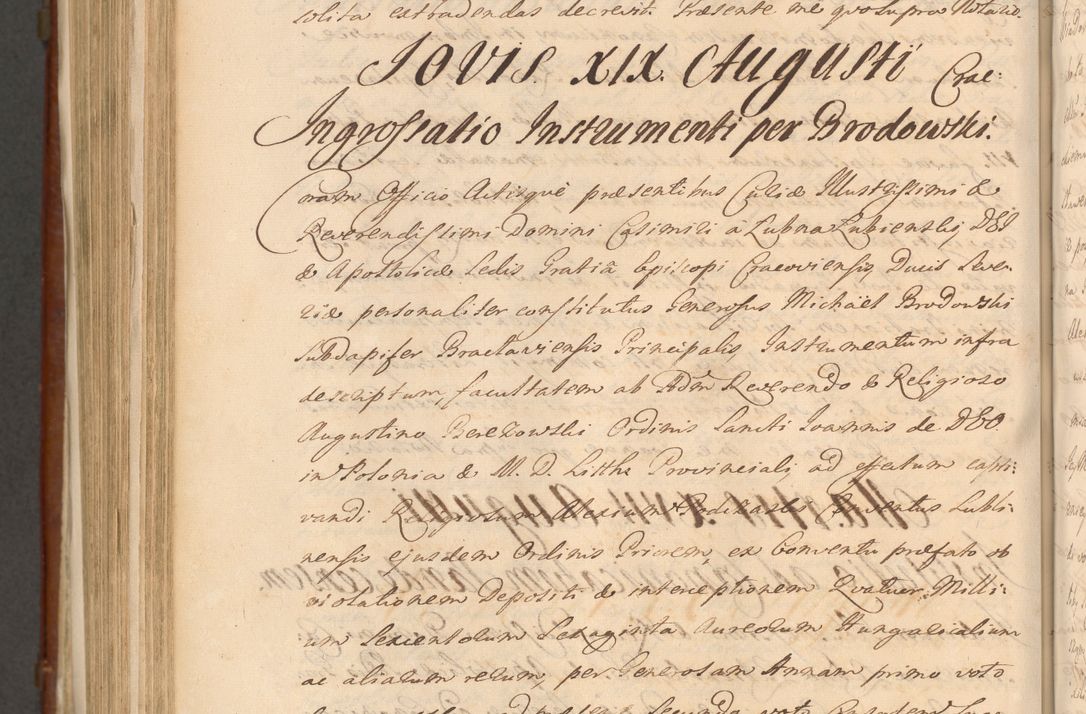 solita extradendas decrevit. Præsente me quo supra Notario.
JOVIS XIX. Augusti Crac:
Ingrossatio Instrumenti per Brodowski.
Coram Officio Actisquè præsentibus Curiæ Illustrissimi &
Reverendissimi Domini Casimiri à Lubna Lubienski, DEI
& Apostolicæ Sedis Gratiâ Episcopi Cracoviensis Ducis Seve-
riæ personaliter constitutus Generosus Michaël Brodowski
Subdapifer Braclaviensis Principalis, Instrumentum infra
descriptum, facultatem ab Adm Reverendo & Religioso
Augustino Berezowski Ordinis Sancti Joannis de DEO
in Polonia & M. D. Litthæ Provinciali ad effectum capti-
vandi Religiosum Conventus Lubli-
nensis ejusdem Ordinis Priorem, ex Conventu præfato ob
violationem Depositi & interceptionem Quatuor Milli-
um Sexcentorum Sexaginta Aureorum Hungaricalium
ac aliarum rerum, per Generosam Annam primo voto